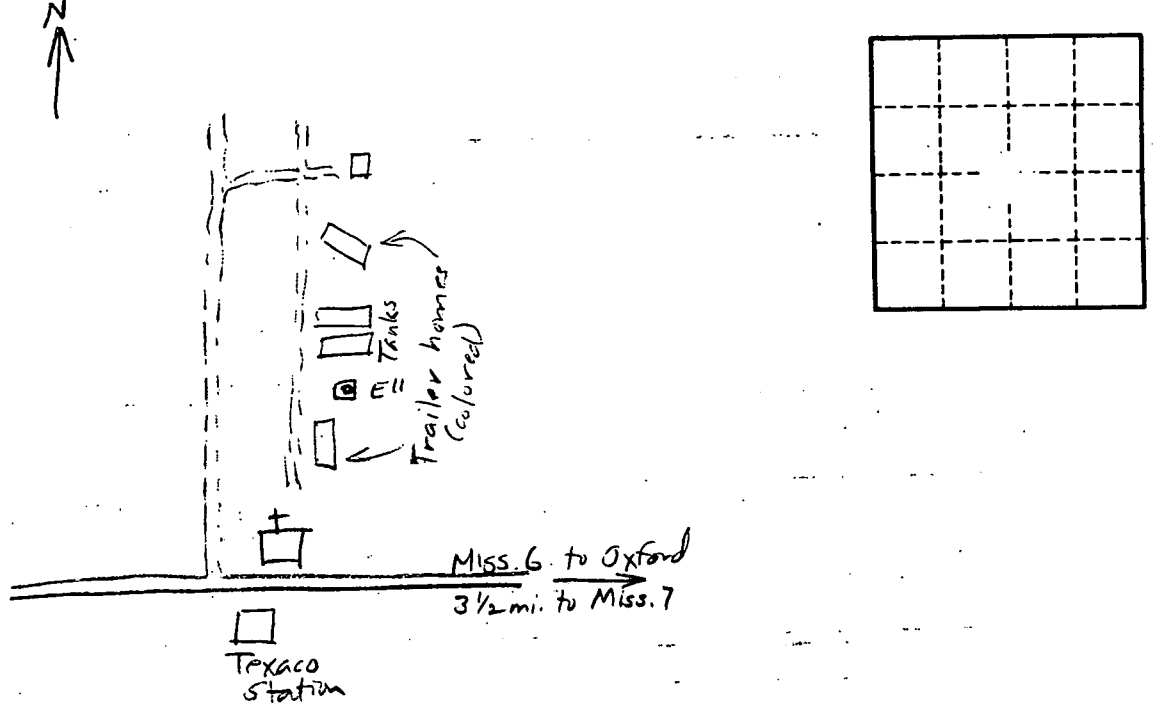 N
Tanks
E11
Trailer homes
(colored)
Miss. 6 to Oxford
3 1/2 mi. to Miss. 7
Texaco
Station